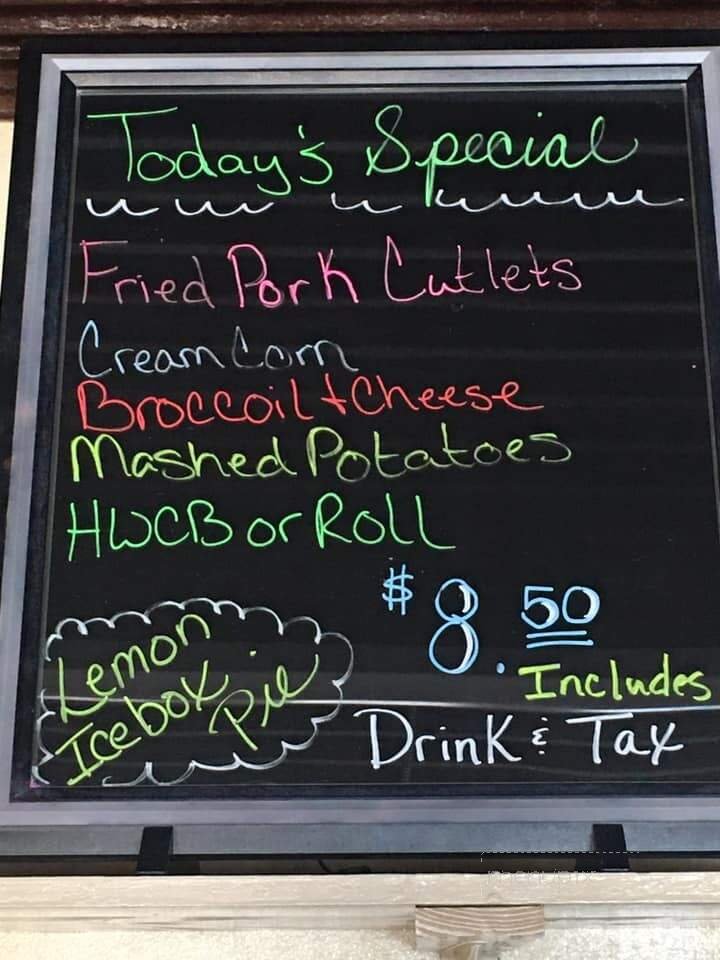 Today's Special
Fried Pork Cutlets
Cream Corn
Broccoil + Cheese
Mashed Potatoes
HWCB or Roll
$8.50
Includes
Drink & Tax
Lemon
Icebox Pie